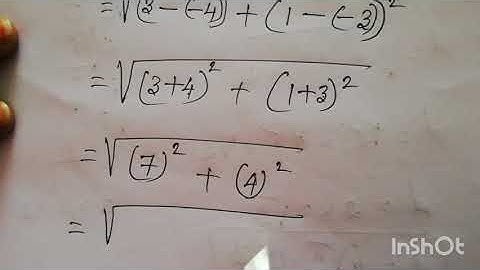 = √(3-(-4))² + (1-(-3))²
= √(3+4)² + (1+3)²
= √(7)² + (4)²
= √
InShOt